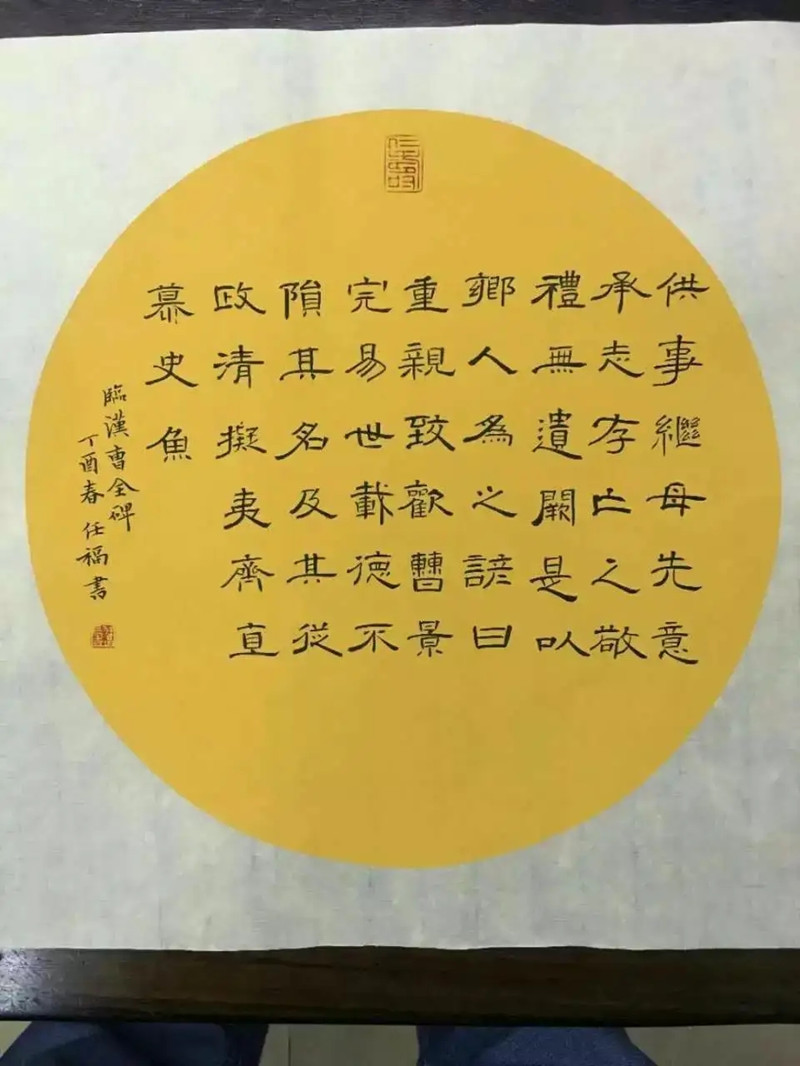 供事繼母先意
承志存亡之敬
禮無遺闕是以
鄉人為之諺曰
重親致歡曹景
完易世載德不
隕其名及其從
政清擬夷齊直
慕史魚
臨漢曹全碑
丁酉春 任福書